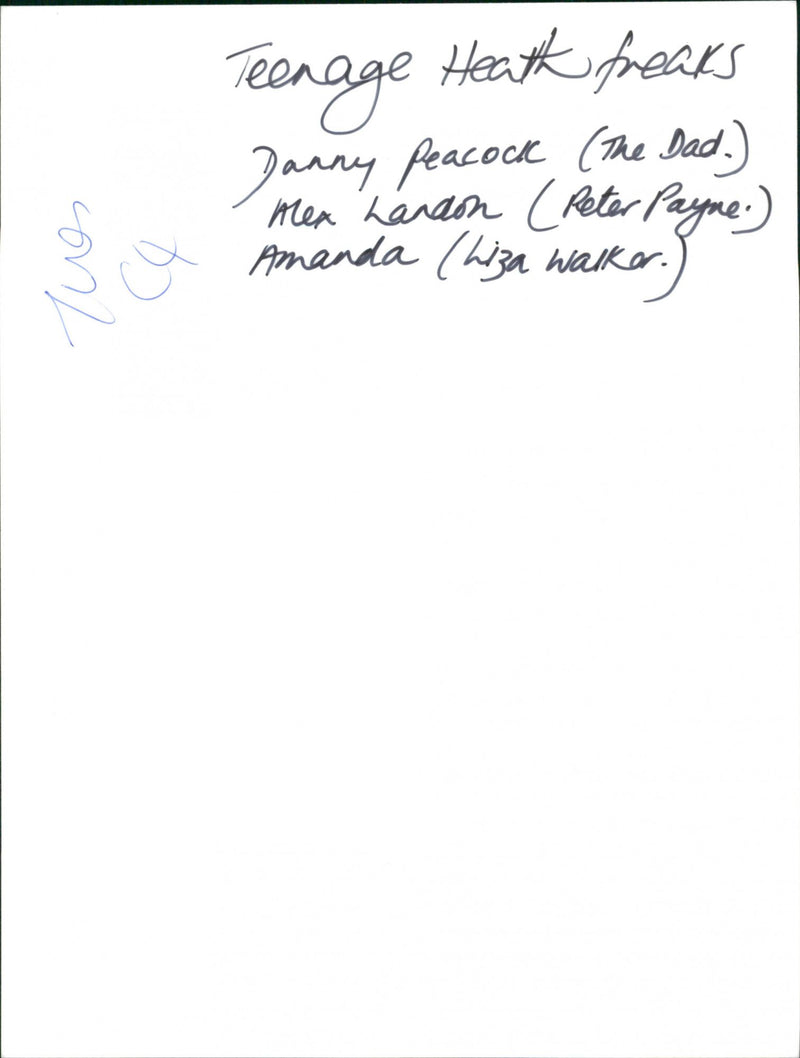 Teenage Heath freaks
Danny Peacock (The Dad.)
Alex Landon (Peter Payne.)
Amanda (Liza Walker.)
Tues
C4